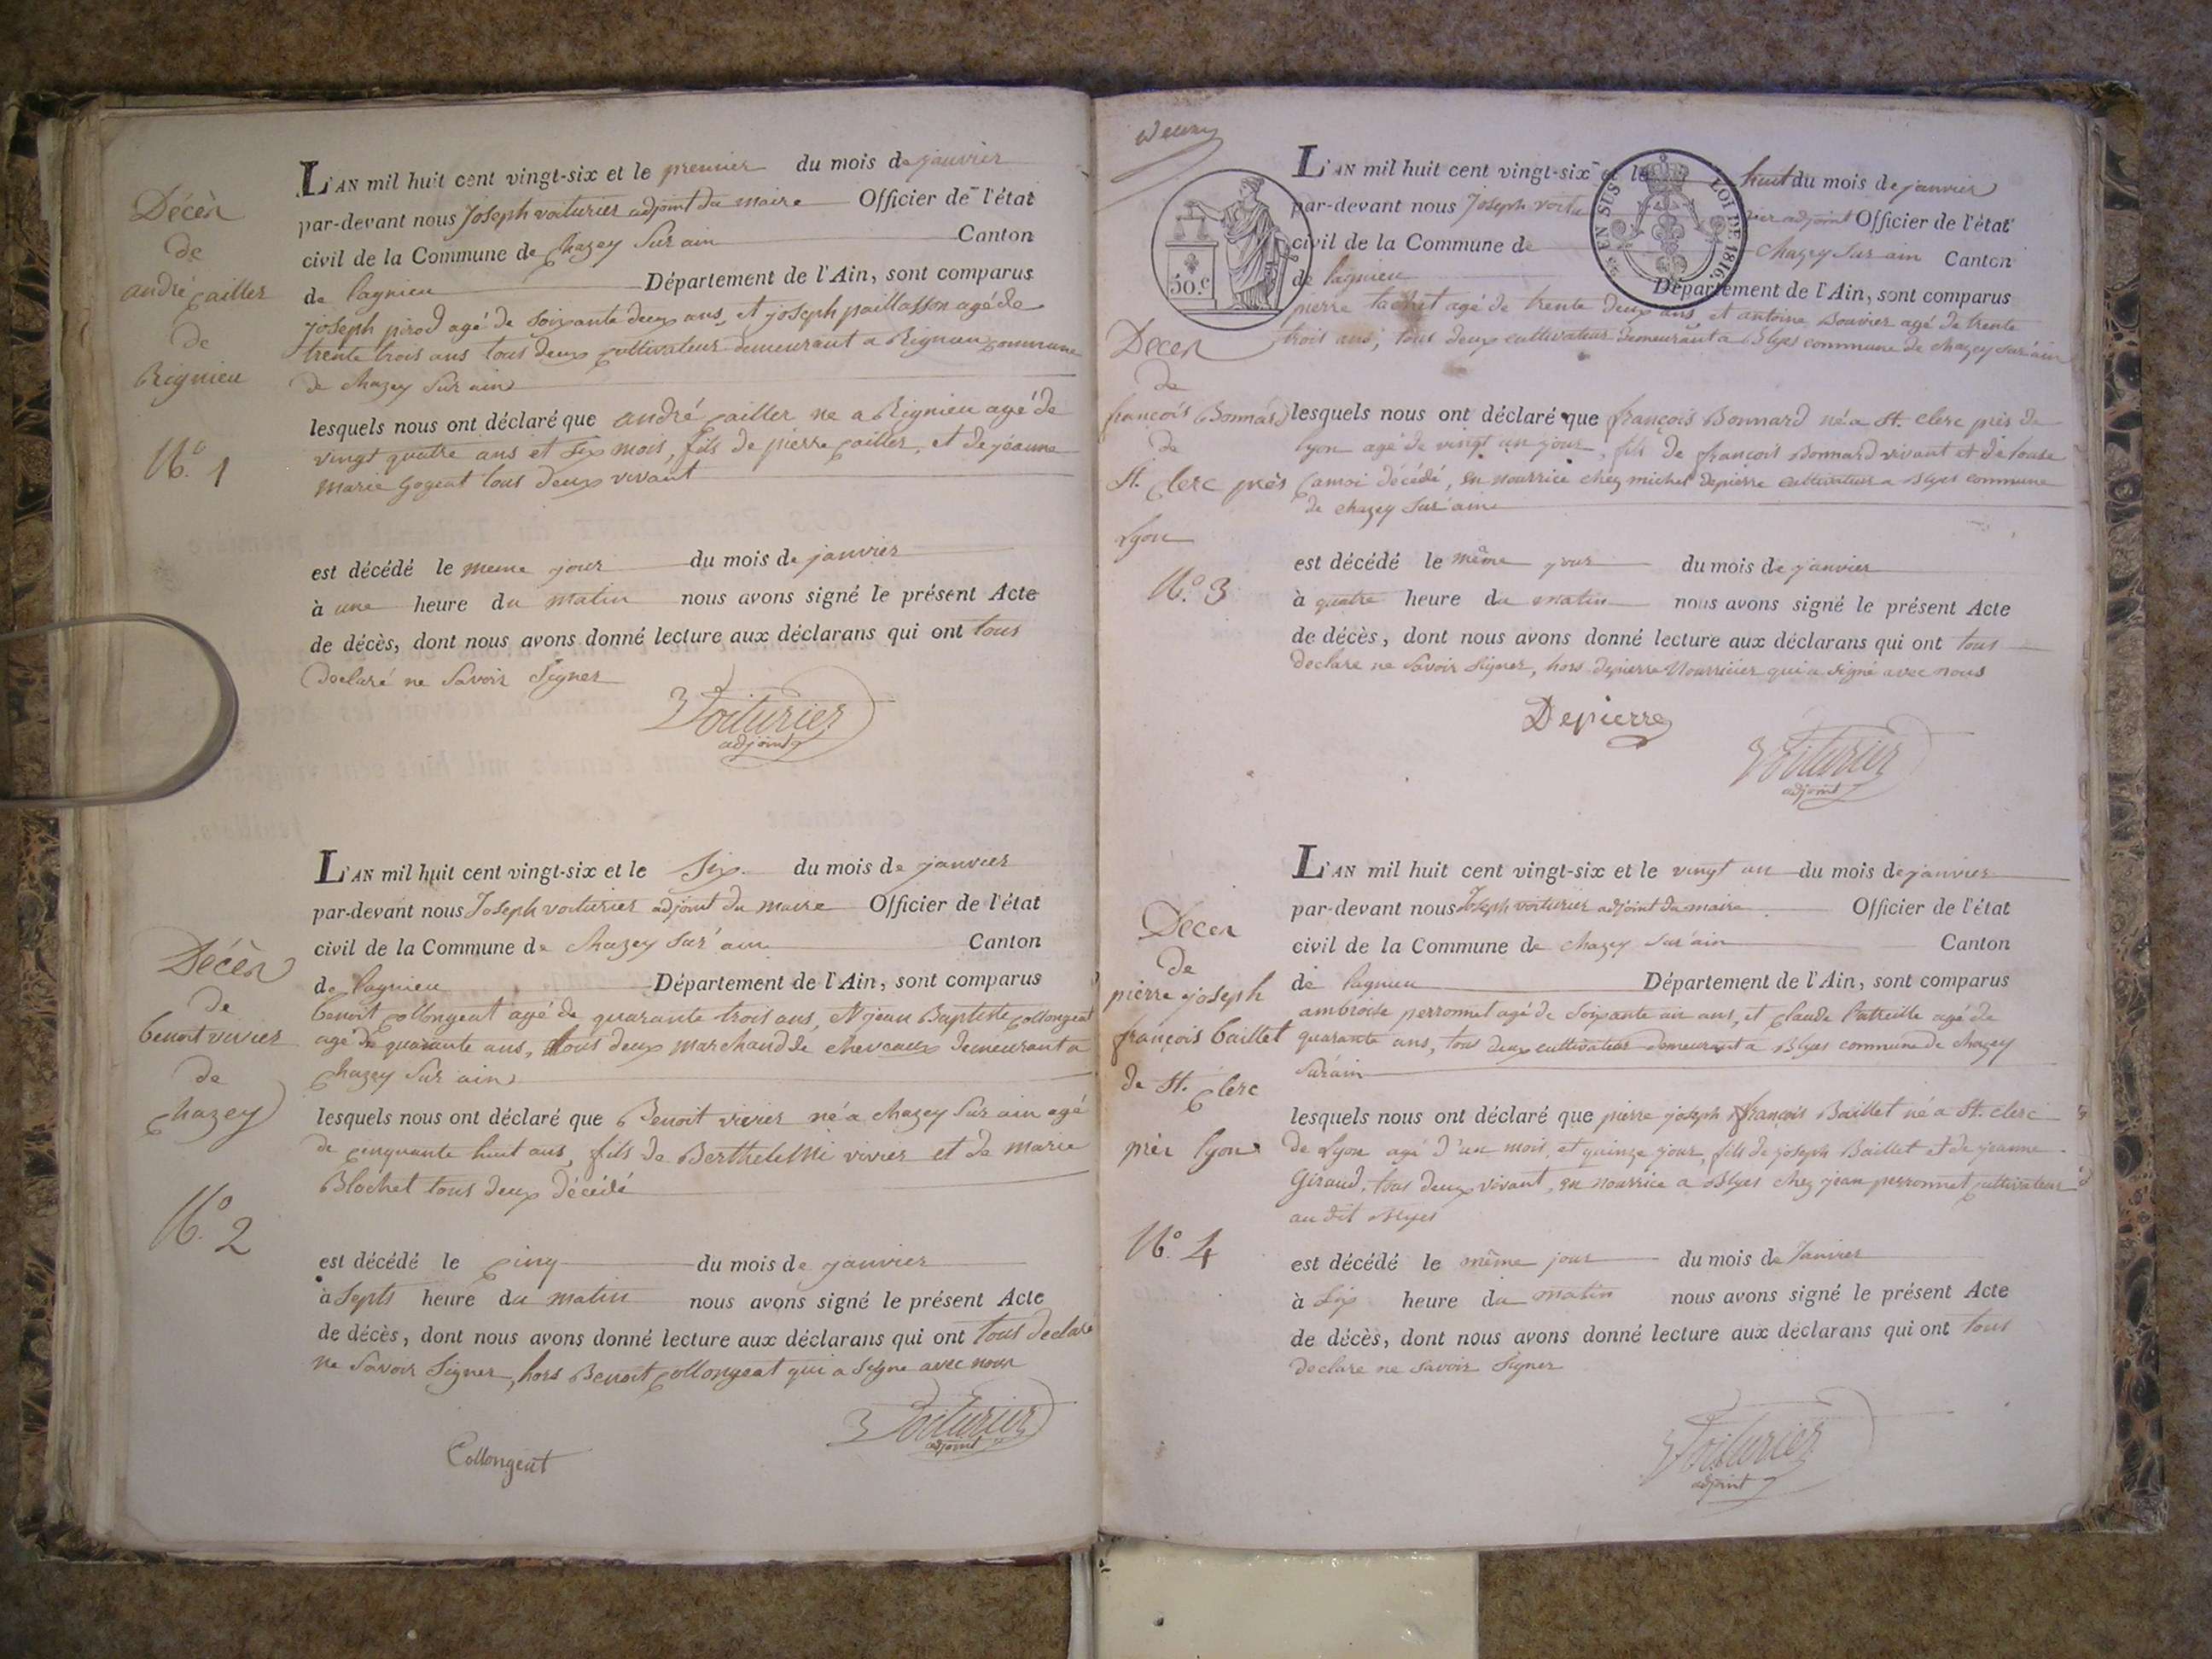 Décès
de
andré cailler
de
Rignieu
N.º 1
L'AN mil huit cent vingt-six et le premier du mois de janvier
par-devant nous Joseph voiturier adjoint du maire Officier de l'état
civil de la Commune de Chazey Sur ain Canton
de lagnieu Département de l'Ain, sont comparus
joseph pirod agé de Soixante deux ans, et joseph paillasson agé de
trente trois ans tous deux cultivateur demeurant a Rignieu commune
de chazey Sur ain
lesquels nous ont déclaré que andré cailler ne a Rignieu agé de
vingt quatre ans et Six mois, fils de pierre cailler, et de jeanne
marie gogeat tous deux vivant
est décédé le meme jour du mois de janvier
à une heure du matin nous avons signé le présent Acte
de décès, dont nous avons donné lecture aux déclarans qui ont tous
Declaré ne Savoir Signer
Voiturier
adjoint
Décès
de
benoit vivier
de
Chazey
N.º 2
L'AN mil huit cent vingt-six et le Six du mois de janvier
par-devant nous Joseph voiturier adjoint du maire Officier de l'état
civil de la Commune de Chazey Sur ain Canton
de lagnieu Département de l'Ain, sont comparus
benoit Collongeat agé de quarante trois ans, et jean Baptiste collongeat
agé de quarante ans, tous deux marchand de cheveaux demeurant a
Chazey Sur ain
lesquels nous ont déclaré que Benoit vivier né a chazey Sur ain agé
de cinquante huit ans, fils de Berthelemi vivier et de marie
Blochet tous deux décédé
est décédé le cinq du mois de janvier
à Septs heure du matin nous avons signé le présent Acte
de décès, dont nous avons donné lecture aux déclarans qui ont tous declaré
ne Savoir Signer, hors Benoit Collongeat qui a Signe avec nous
Voiturier
adjoint
Collongeat
50.c
EN SUS
LOI DE 1816.
Deces
de
françois Bonnard
de
St. Clerc près
Lyon
N.º 3
L'AN mil huit cent vingt-six et le huit du mois de janvier
par-devant nous Joseph voiturier adjoint Officier de l'état
civil de la Commune de Chazey Sur ain Canton
de lagnieu Département de l'Ain, sont comparus
pierre agé de trente deux ans et antoine Bouvier agé de trente
trois ans, tous deux cultivateur demeurant a Blyes commune de chazey sur ain
lesquels nous ont déclaré que françois Bonnard né a St. Clerc près de
lyon agé de vingt un jour, fils de françois Bonnard vivant et de louse
Camoi décédé, en nourrice chez michel depierre cultivateur a Blyes commune
de chazey Sur ain
est décédé le même jour du mois de janvier
à quatre heure du matin nous avons signé le présent Acte
de décès, dont nous avons donné lecture aux déclarans qui ont tous
declare ne Savoir Signer, hors depierre Nourricier qui a signé avec nous
Depierre
Voiturier
adjoint
Deces
de
pierre joseph
françois baillet
de St. Clerc
près lyon
N.º 4
L'AN mil huit cent vingt-six et le vingt un du mois de janvier
par-devant nous Joseph voiturier adjoint du maire Officier de l'état
civil de la Commune de chazey Sur ain Canton
de lagnieu Département de l'Ain, sont comparus
ambroise perronnet agé de Soixante un ans, et Claude agé de
quarante ans, tous deux cultivateur demeurant a Blyes commune de chazey
Sur ain
lesquels nous ont déclaré que pierre joseph françois Baillet né a St. clerc
de Lyon agé d'un mois, et quinze jour, fils de joseph Baillet et de jeanne
Giraud, tous deux vivant, en nourrice a Blyes chez jean perronnet cultivateur
au dit Blyes
est décédé le même jour du mois de Janvier
à Six heure du matin nous avons signé le présent Acte
de décès, dont nous avons donné lecture aux déclarans qui ont tous
declare ne savoir Signer
Voiturier
adjoint